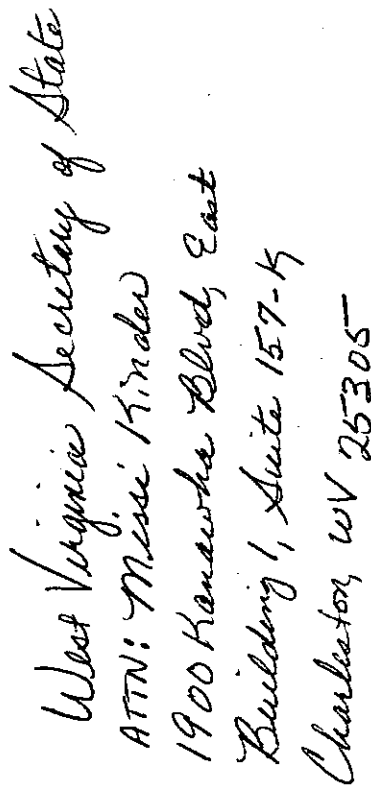 West Virginia Secretary of State
ATTN: Missi Kinder
1900 Kanawha Blvd, East
Building 1, Suite 157-K
Charleston, WV 25305